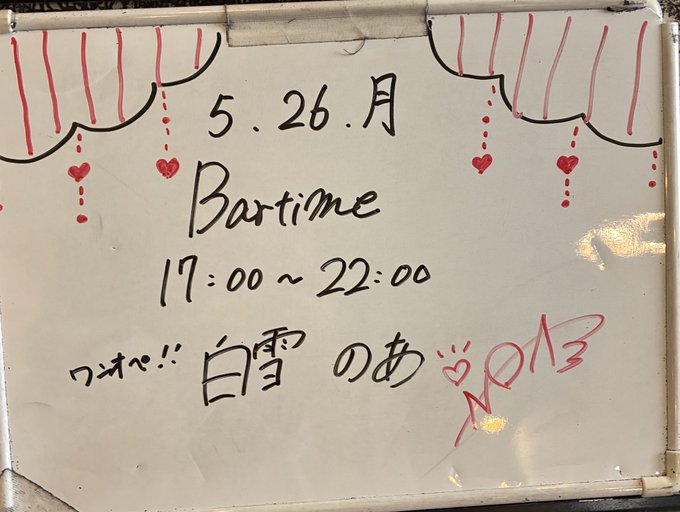 5.26.月
Bartime
17:00~22:00
ワンオペ!! 白雪 のあ
NOA